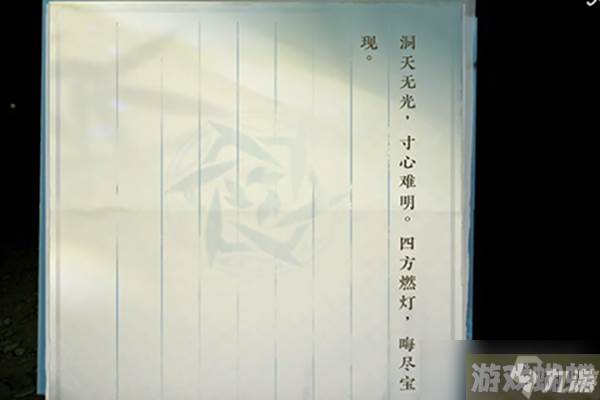 洞天无光，寸心难明。四方燃灯，晦尽宝
现。
游戏蝴蝶
九游